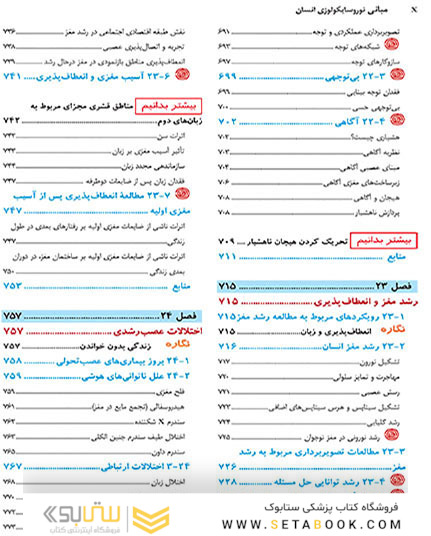 X مبانی نوروسایکولوژی انسان
تصویربرداری عملکردی و توجه ۶۹۱
شبکه‌های توجه ۶۹۳
سازوکارهای توجه ۶۹۷
۲۲-۳ بی‌توجهی ۶۹۹
فقدان توجه بینایی ۶۹۹
بی‌توجهی حسی ۷۰۰
۲۲-۴ آگاهی ۷۰۲
هشیاری چیست؟ ۷۰۲
نظریه آگاهی ۷۰۳
مبنای عصبی آگاهی ۷۰۴
زیرساخت‌های مغزی آگاهی ۷۰۶
هیجان و آگاهی ۷۰۸
پردازش ناهشیار ۷۰۸
بیشتر بدانیم تحریک کردن هیجان ناهشیار ۷۰۹
منابع ۷۱۱
فصل ۲۳ ۷۱۵
رشد مغز و انعطاف‌پذیری ۷۱۵
۲۳-۱ رویکردهای مربوط به مطالعه رشد مغز ۷۱۵
نگاره انعطاف‌پذیری و زبان ۷۱۵
۲۳-۲ رشد مغز انسان ۷۱۶
تشکیل نورون ۷۱۷
مهاجرت و تمایز سلولی ۷۲۰
رستن عصبی ۷۲۱
تشکیل سیناپس و هرس سیناپس‌های اضافی ۷۲۲
رشد گلیایی ۷۲۴
رشد نورونی در مغز نوجوان ۷۲۵
۲۳-۳ مطالعات تصویربرداری مربوط به رشد
مغز ۷۲۶
۲۳-۴ رشد توانایی حل مسئله ۷۲۸
نقش طبقه اقتصادی اجتماعی در رشد مغز ۷۳۶
تجربه و اتصال‌پذیری عصبی ۷۳۸
انعطاف‌پذیری مناطق بازنمودی در مغز درحال رشد ۷۳۹
۲۳-۶ آسیب مغزی و انعطاف‌پذیری ۷۴۱
بیشتر بدانیم مناطق قشری مجزای مربوط به
زبان‌های دوم ۷۴۲
اثرات سن ۷۴۲
تأثیر آسیب مغزی بر زبان ۷۴۳
سازماندهی مجدد زبان ۷۴۳
فقدان زبان پس از ضایعات دوطرفه ۷۴۷
۲۳-۷ مطالعه انعطاف‌پذیری پس از آسیب
مغزی اولیه ۷۴۷
اثرات ناشی از ضایعات مغزی اولیه بر رفتارهای بعدی در طول
زندگی ۷۴۷
اثرات ناشی از ضایعات مغزی اولیه بر ساختمان مغز، در دوران
بعدی زندگی ۷۵۰
منابع ۷۵۳
فصل ۲۴ ۷۵۷
اختلالات عصب‌رشدی ۷۵۷
نگاره زندگی بدون خواندن ۷۵۷
۲۴-۱ بروز بیماری‌های عصب‌تحولی ۷۵۸
۲۴-۲ علل ناتوانی‌های هوشی ۷۵۹
فلج مغزی ۷۵۹
هیدروسفالی (تجمع مایع در مغز) ۷۶۱
سندرم X شکننده ۷۶۲
اختلال طیف سندرم جنین الکلی ۷۶۳
سندرم داون ۷۶۵
۲۴-۳ اختلالات ارتباطی ۷۶۷
اختلال زبان ۷۶۸
۷۷۰
۷۷۲
۷۷۳
فروشگاه کتاب پزشکی ستابوک
WWW.SETABOOK.COM
ستابوک
فروشگاه اینترنتی کتاب